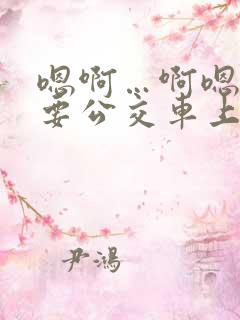 嗯啊…啊嗯
要公交車上
尹鴻